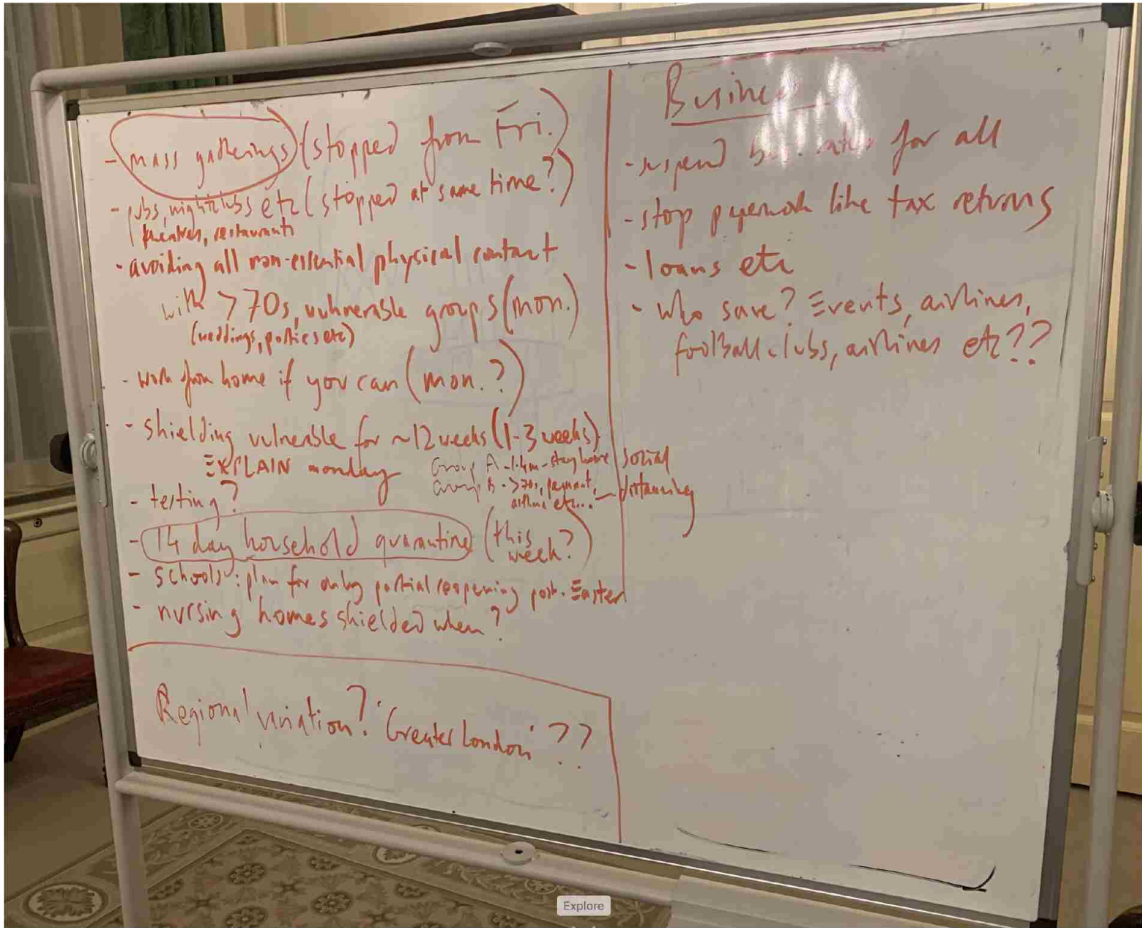 - mass gatherings (stopped from Fri.)
- pubs, nightclubs etc (stopped at same time?)
theatres, restaurants
- avoiding all non-essential physical contact
with >70s, vulnerable groups (mon.)
(weddings, parties etc)
- work from home if you can (mon.?)
- shielding vulnerable for ~12 weeks (1-3 weeks)
EXPLAIN monday
Group A - 1.4m - stay home
Group B - >70s, pregnant,
asthma etc... - social
distancing
- testing?
- 14 day household quarantine (this
week?)
- schools: plan for only partial reopening post-Easter
- nursing homes shielded when?
Regional variation? 'Greater London' ??
Business
- suspend rates for all
- stop paperwork like tax returns
- loans etc
- Who save? Events, airlines,
football clubs, airlines etc??
Explore